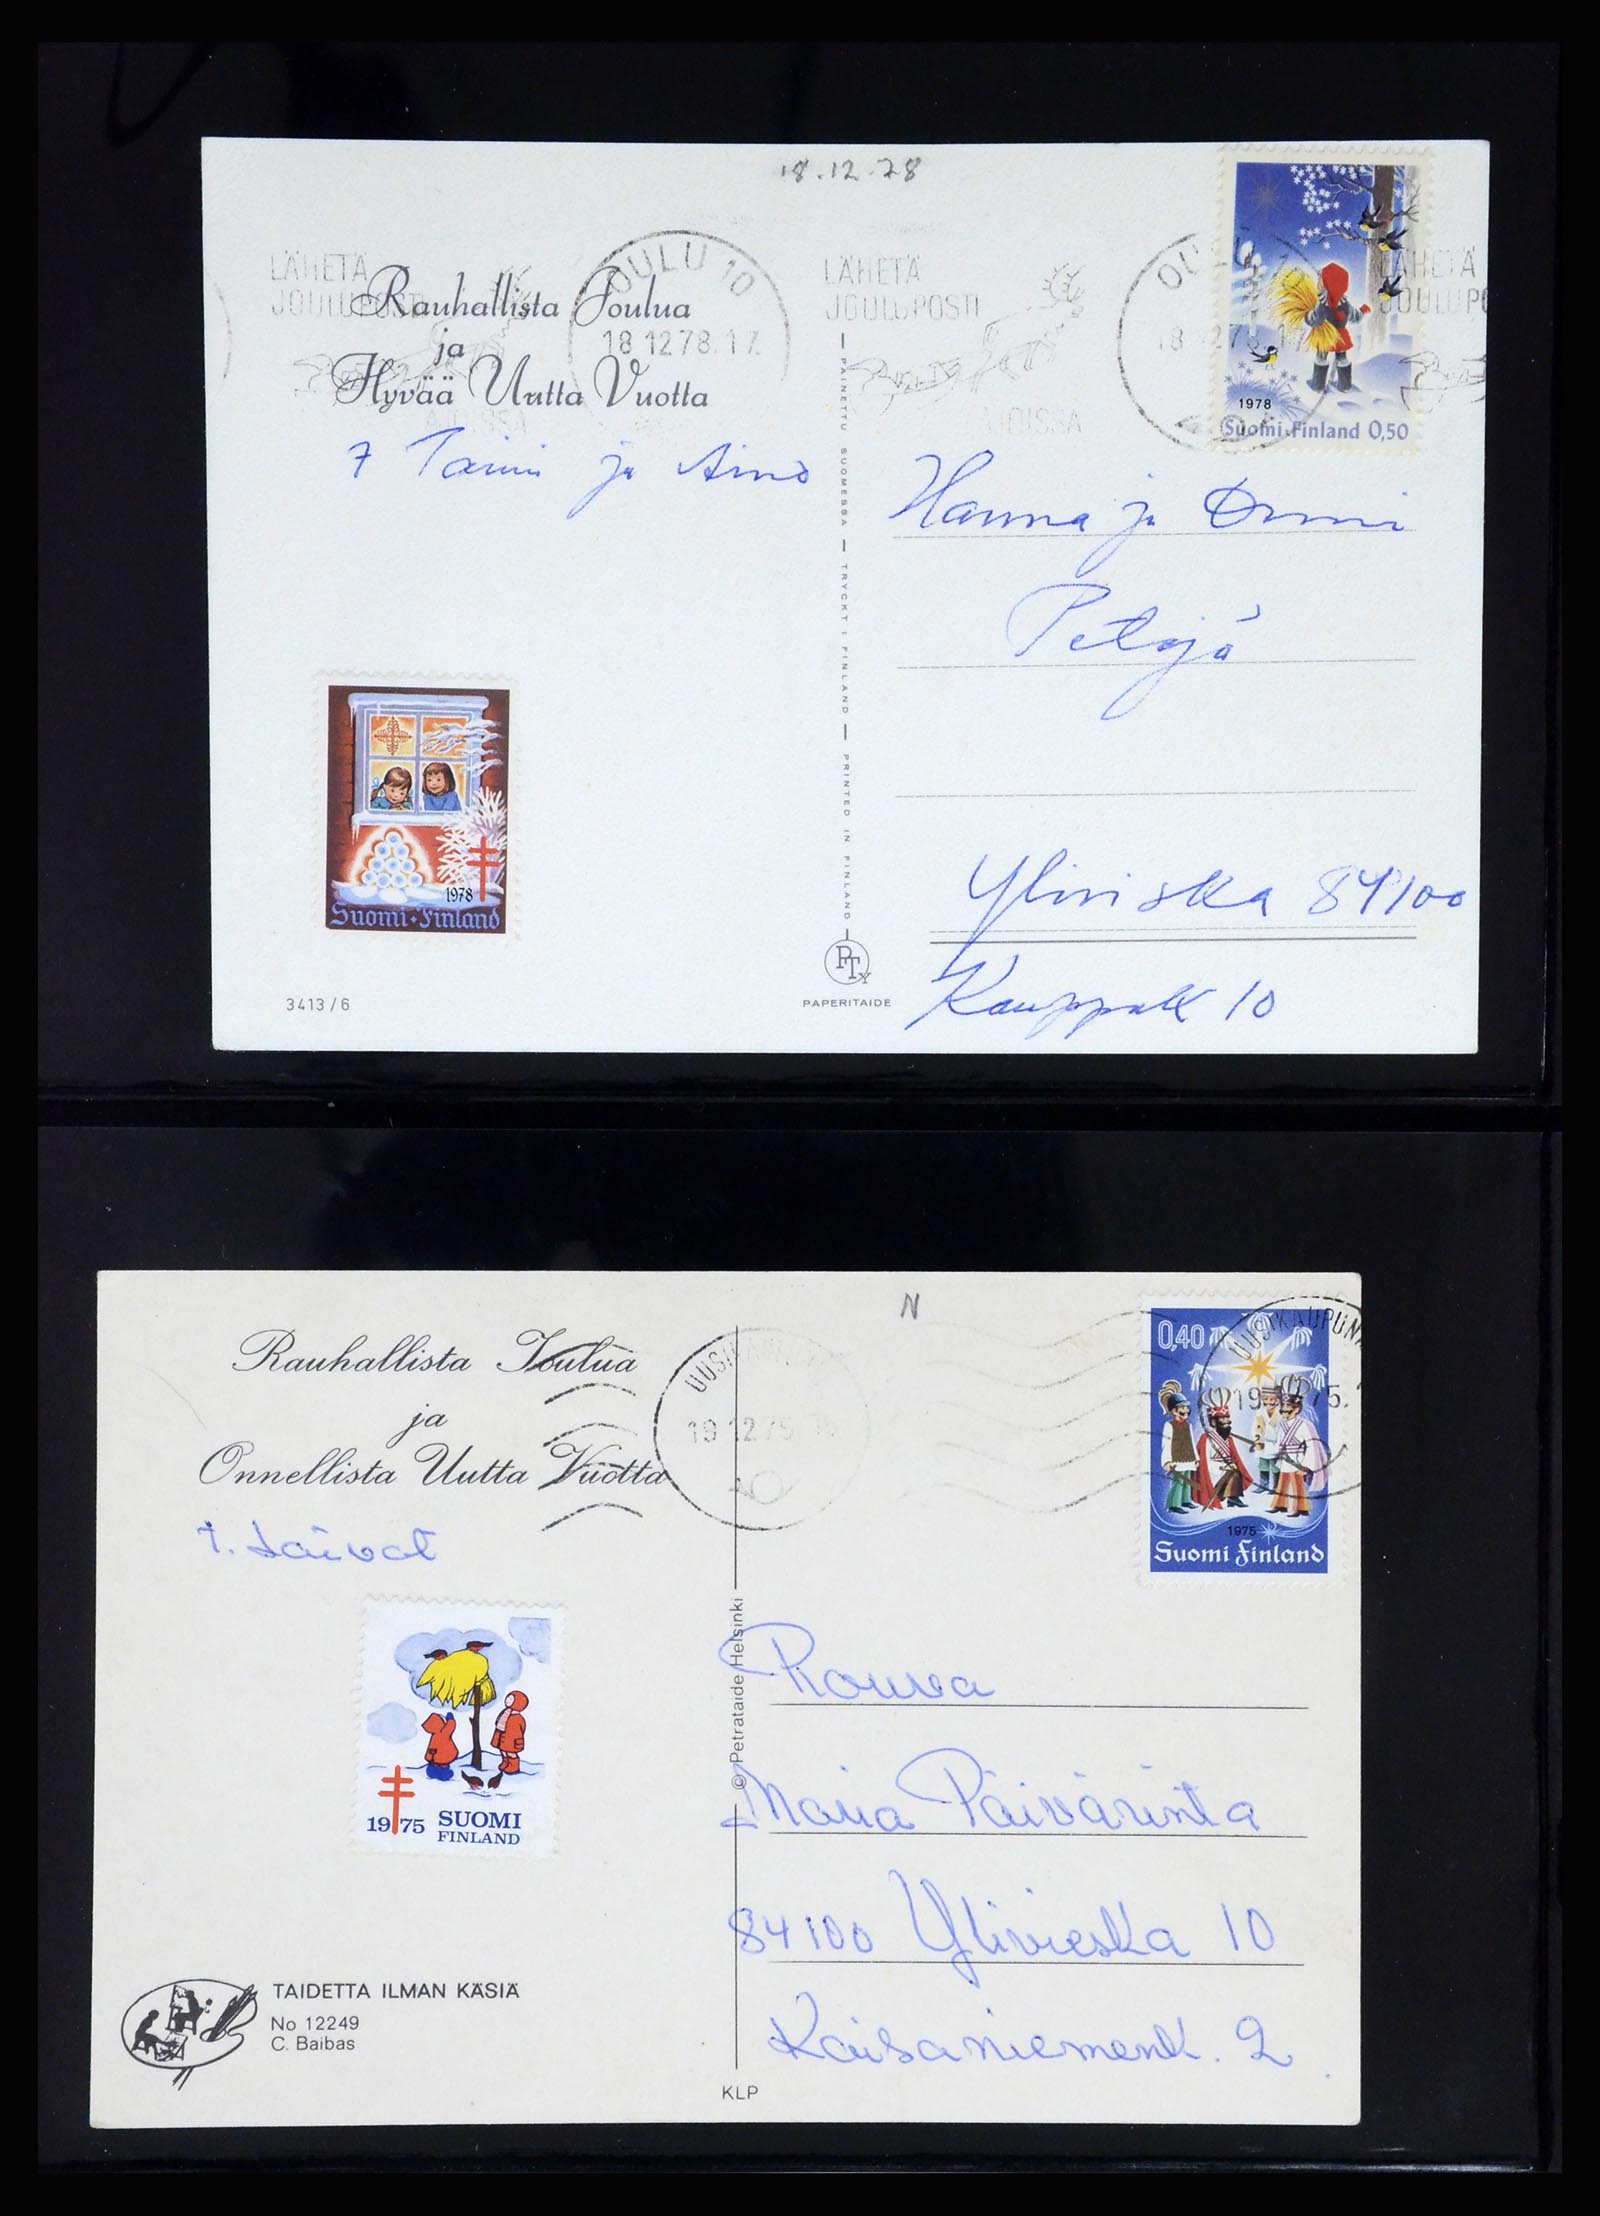 18.12.78
LÄHETÄ
JOULUPOSTI
AJOISSA
OULU 10
18.12.78.17
LÄHETÄ
JOULUPOSTI
AJOISSA
OULU
LÄHETÄ
1978
Suomi·Finland 0,50
Rauhallista Joulua
ja
Hyvää Uutta Vuotta
ja Aino
PAINETTU SUOMESSA — TRYCKT I FINLAND — PRINTED IN FINLAND
Hanna ja
Petäjä
Ylivieska 84100
Kauppak 10
1978
Suomi·Finland
3413/6
PTY
PAPERITAIDE
N
Rauhallista Joulua
ja
Onnellista Uutta Vuotta
19.12.75
0,40
UUSIKAUPUNKI
19.12.75.
1975
Suomi Finland
T. Laivat
© Petrataide Helsinki
Rouva
Maria Päivärinta
84100 Ylivieska 10
Kaisaniemenk. 2
1975 SUOMI
FINLAND
TAIDETTA ILMAN KÄSIÄ
No 12249
C. Baibas
KLP